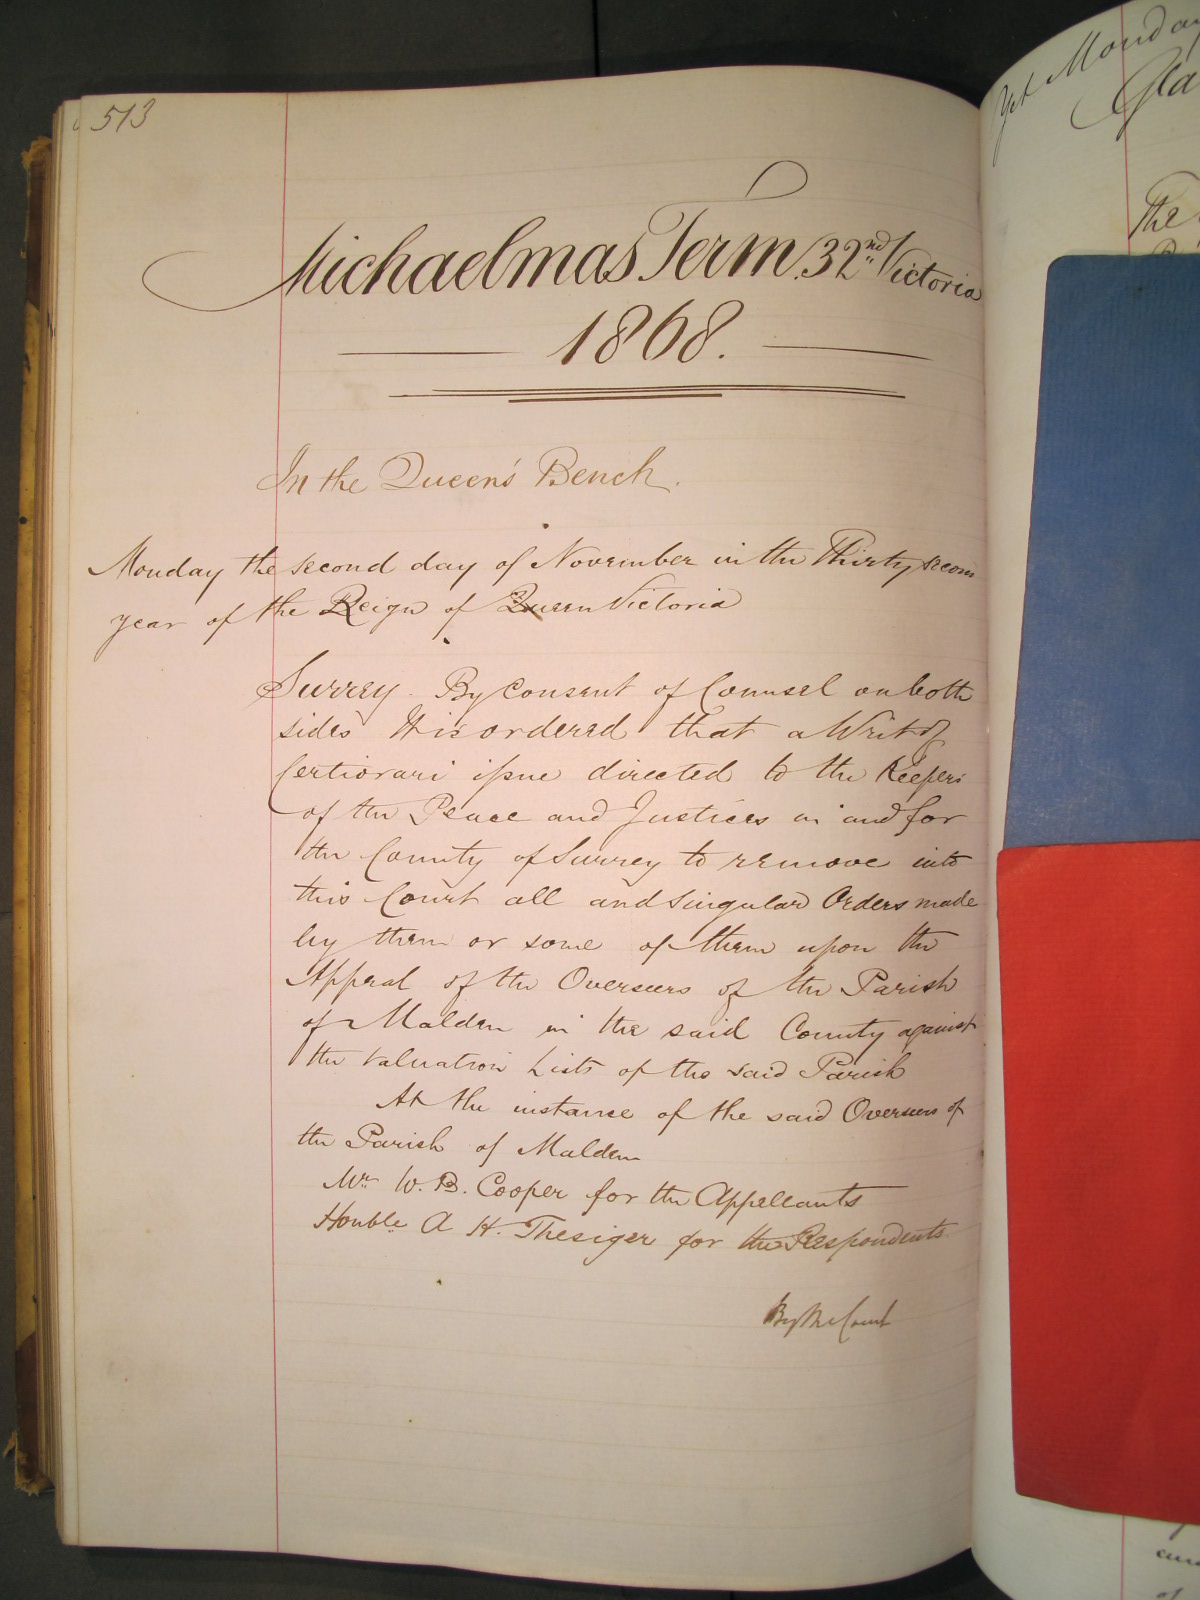 513
Michaelmas Term 32nd Victoria
1868.
In the Queen's Bench.
Monday the second day of November in the Thirty secon
year of the Reign of Queen Victoria
Surrey. By Consent of Counsel on both
sides It is ordered that a Writ of
Certiorari issue directed to the Keepers
of the Peace and Justices in and for
the County of Surrey to remove into
this Court all and singular Orders made
by them or some of them upon the
Appeal of the Overseers of the Parish
of Malden in the said County against
the Valuation Lists of the said Parish
At the instance of the said Overseers of
the Parish of Malden
Mr W. B. Cooper for the Appellants
Honble A H. Thesiger for the Respondents
By the Court
Yet Monday
Gla
The